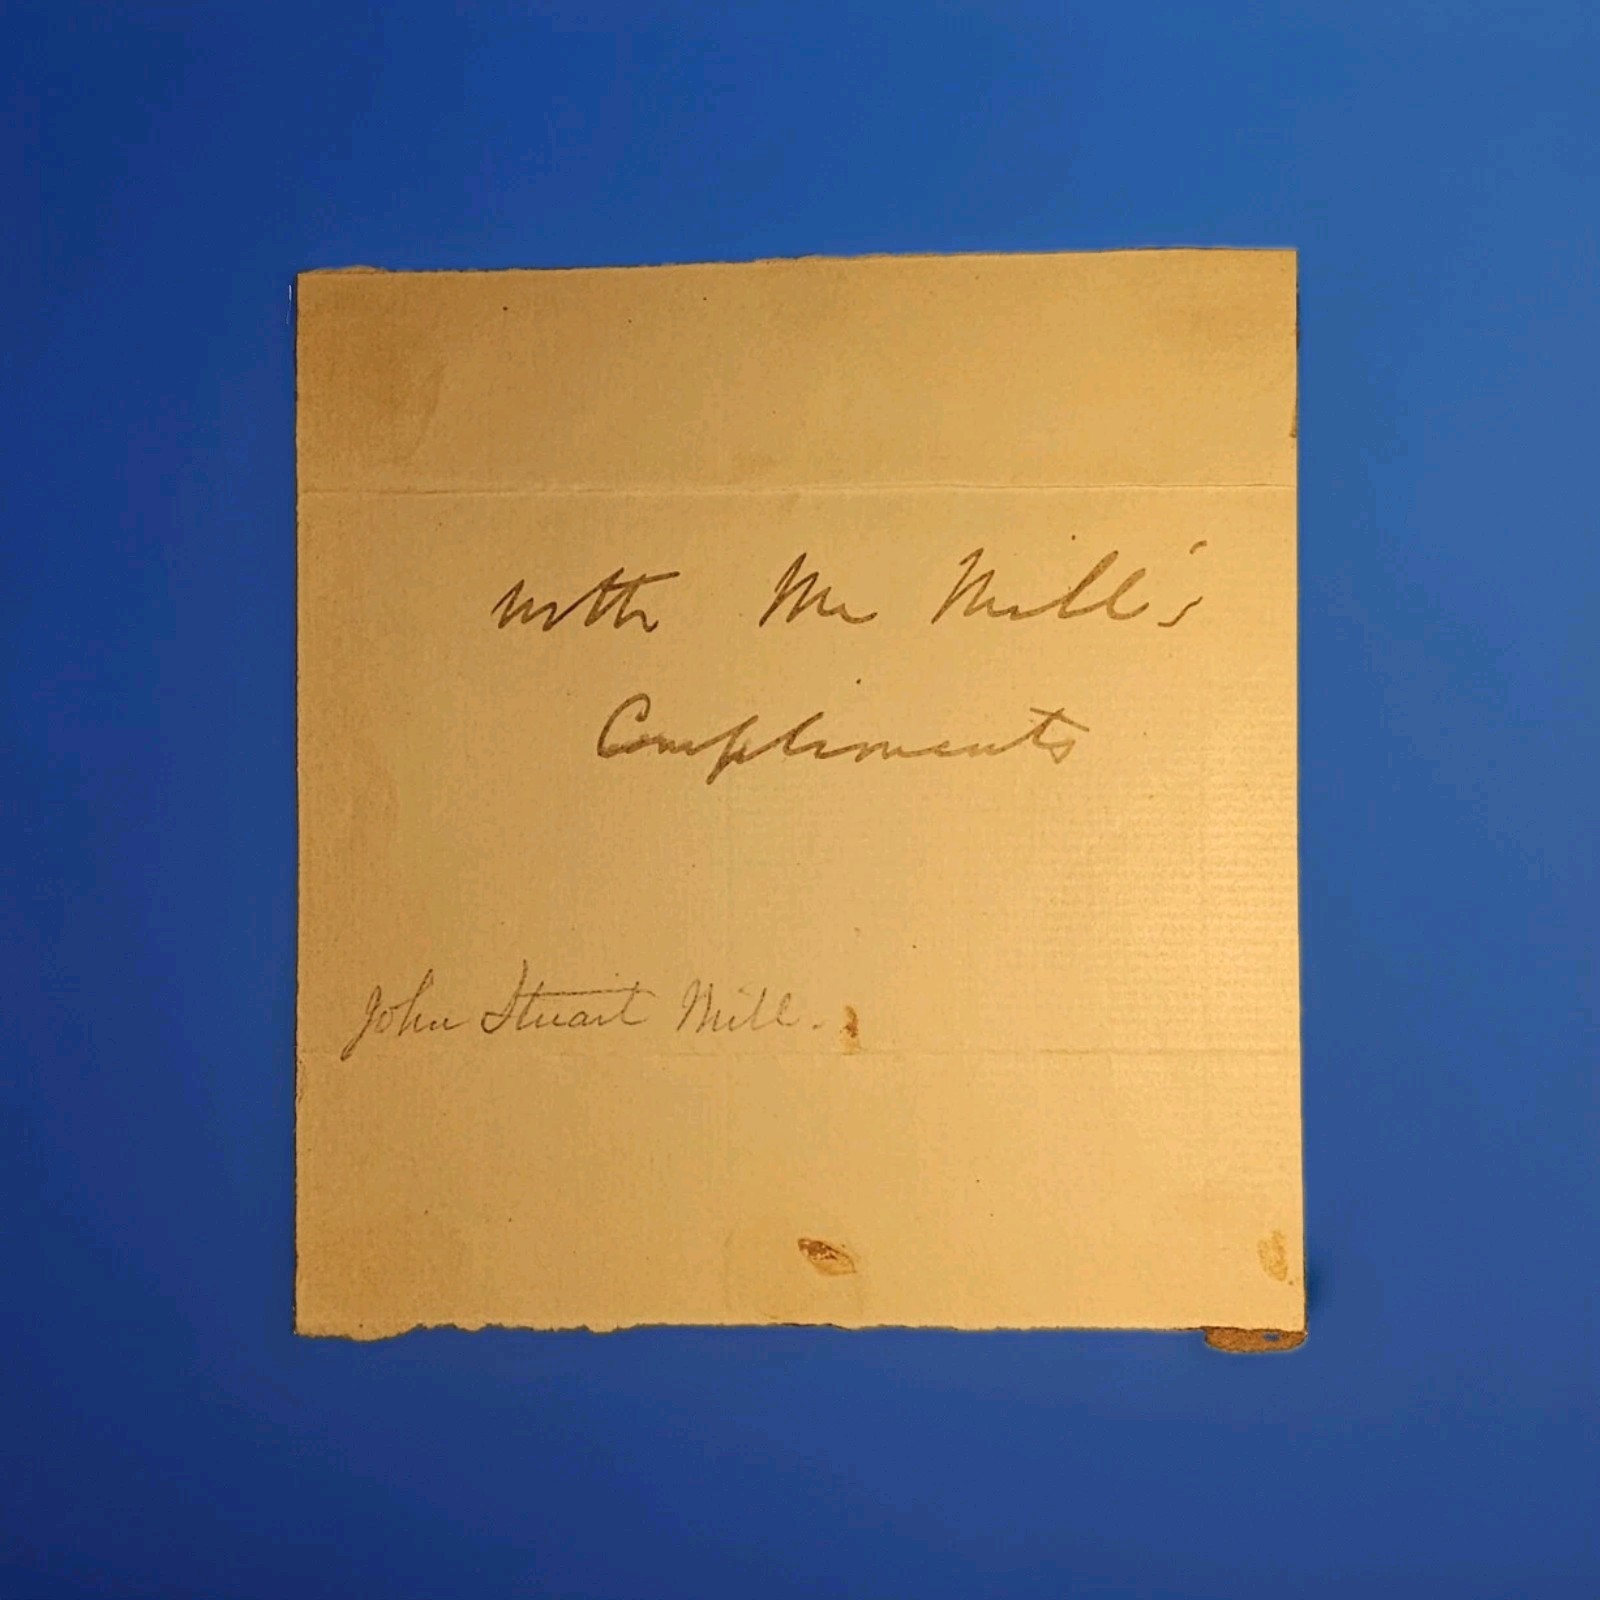 with Mr Mill's
Compliments
John Stuart Mill.